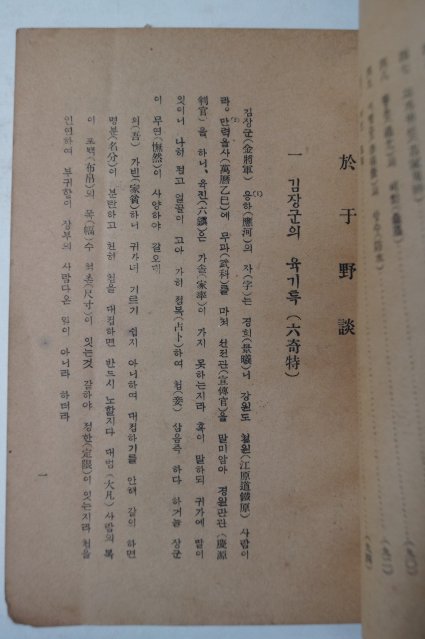 於于野談
一 김장군의 육기특(六奇特)
김장군(金將軍) 응하(應河)의 자(字)는 경희(景曦)니 강원도 철원(江原道鐵原) 사람이
라. 만력을사(萬曆乙巳)에 무과(武科)를 마쳐 선전관(宣傳官)을 말미암아 경원판관(慶源
判官)을 하니, 육진(六鎭)은 가솔(家率)이 가지 못하는지라 혹이 말하되 귀가에 딸이
잇이니 나히 졈고 얼골이 고아 가히 졈복(占卜)하여 첩(妾) 삼음즉 하다 하거늘 장군
이 무연(憮然)이 사양하야 갈오대
의(吾) 가빈(家貧)하니 귀가녀 기르기 쉽지 아니하여 대접하기를 안해 같이 하면
명분(名分)이 문란하고 천히 첩을 대접하면 반드시 노할지다 대범(大凡) 사람의 복
이 포백(布帛)의 폭(幅)수 척촌(尺寸)이 잇는것 같하야 정한(定限)이 잇는지라 첩을
인연하여 부귀함이 장부의 사람다온 일이 아니라 하더라
一